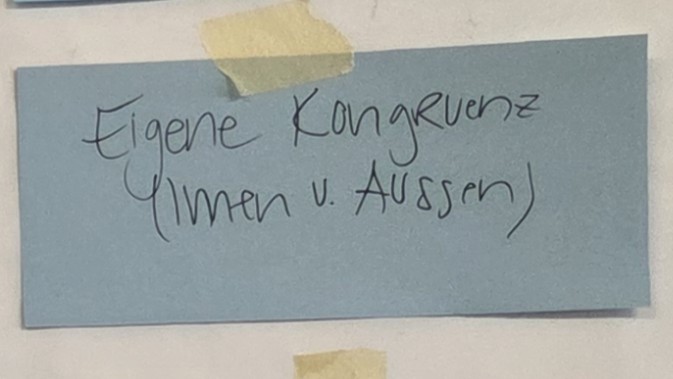 Eigene Kongruenz
(Innen u. Aussen)